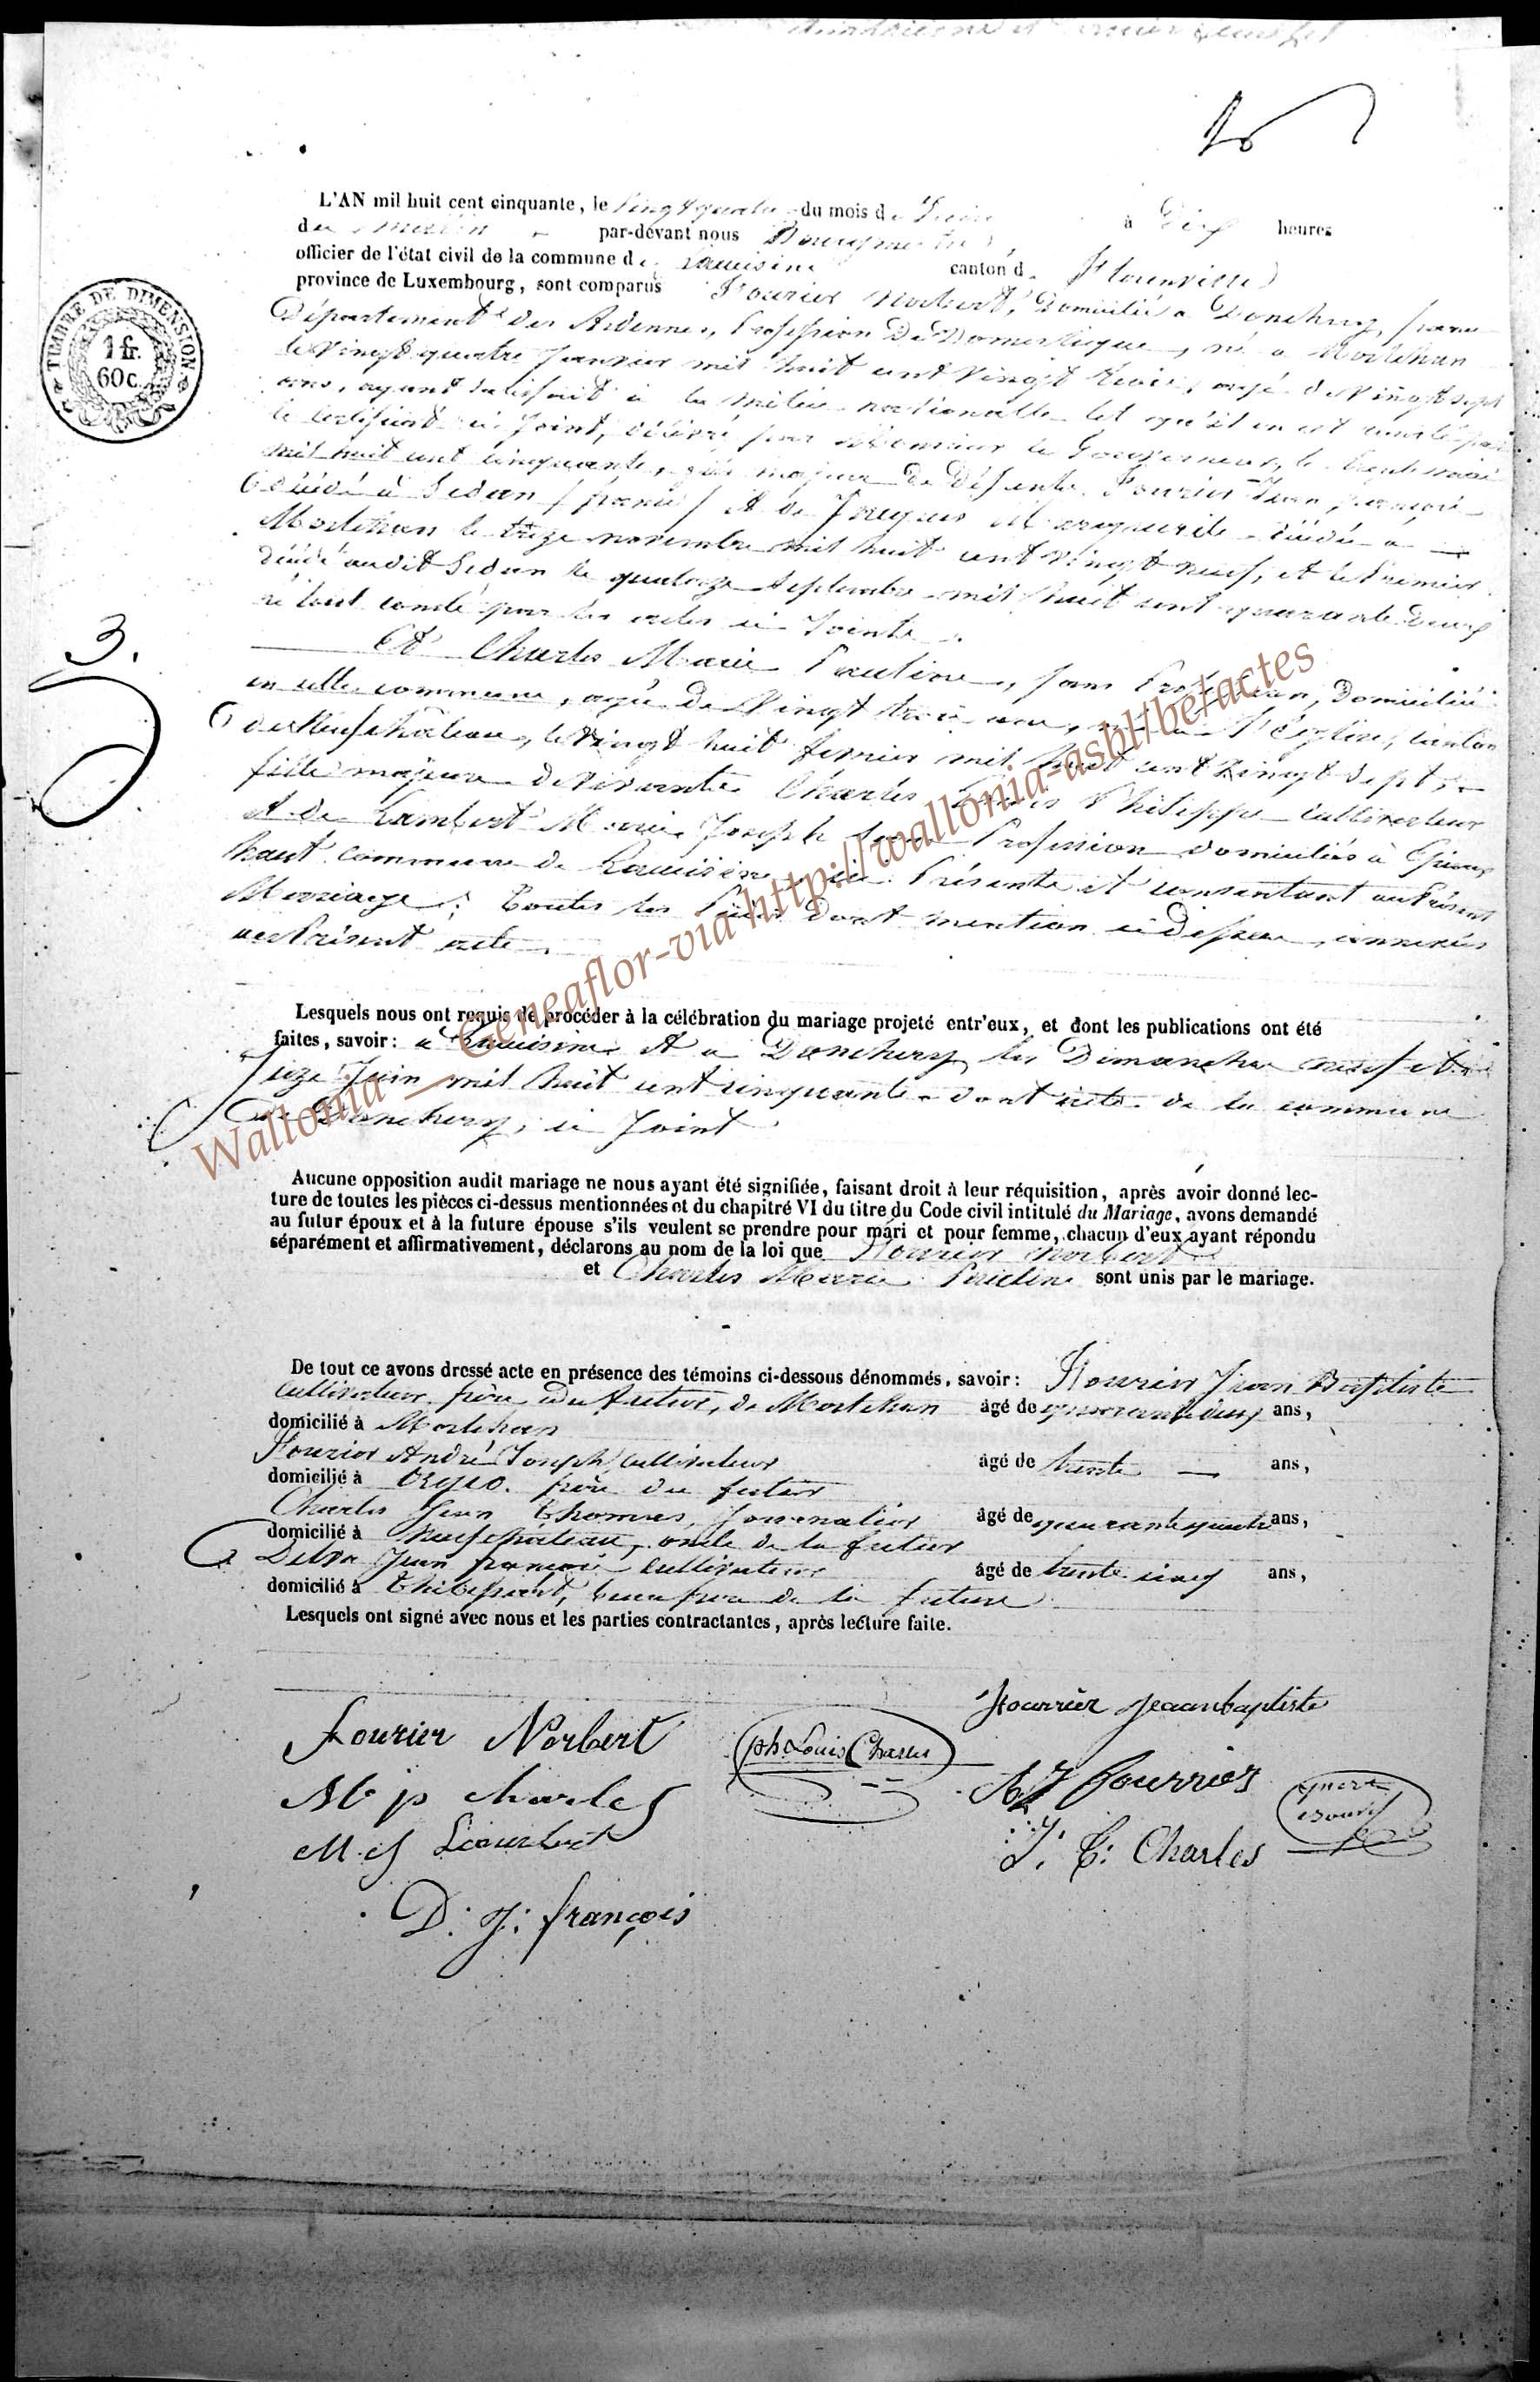 TIMBRE DE DIMENSION
1 fr.
60 c.
3.
L'AN mil huit cent cinquante, le Vingt quatre du mois de Juin à Dix heures
du matin par-devant nous Bourgmestre,
officier de l'état civil de la commune de Lacuisine canton d. Florenville
province de Luxembourg, sont comparus Fourier Norbert, Domicilié a Donchery, france
Département des Ardennes, Profession De Domestique, né a Mortehan
le Vingt quatre Janvier mil huit cent Vingt trois, agé de Vingt sept
ans, ayant satisfait à la milice nationalle tel qu'il en est
le certificat ci Joint, délivré par Monsieur le Gouverneur, le
mil huit cent cinquante, fils majeur De Défunts Fourier Jean françois
Décédé à Sedan /france/ Et de Jacques Marguerite décédée a
Mortehan le treize novembre mil huit cent Vingt neuf, et le Premier
décédé audit Sedan le quatorze Septembre mil huit cent quarante Deux
le tout constté par les actes ci Joints.
Et Charles Marie Pauline, sans Profession, Domiciliée
en cette commune, agée De Vingt trois ans, née à l'église, canton
de Neufchâteau, le Vingt huit fevrier mil huit cent Vingt Sept,
fille majeure de Vivants Charles Louis Philippe cultivateur
Et de Lambert Marie Joseph sans Profession domiciliés à
haut commune de Lacuisine ici Présents et consentant au Présent
Mariage; toutes les Pièces Dont mention ci Dessus, annexées
au Présent acte.
Lesquels nous ont requis de procéder à la célébration du mariage projeté entr'eux, et dont les publications ont été
faites, savoir: a Lacuisine Et a Donchery les Dimanches neuf et
Seize Juin mil huit cent cinquante dont acte de la commune
de Donchery, ci Joint
Aucune opposition audit mariage ne nous ayant été signifiée, faisant droit à leur réquisition, après avoir donné lec-
ture de toutes les pièces ci-dessus mentionnées et du chapitre VI du titre du Code civil intitulé du Mariage, avons demandé
au futur époux et à la future épouse s'ils veulent se prendre pour mari et pour femme, chacun d'eux ayant répondu
séparément et affirmativement, déclarons au nom de la loi que Fourier Norbert
et Charles Marie Pauline sont unis par le mariage.
De tout ce avons dressé acte en présence des témoins ci-dessous dénommés, savoir: Fourier Jean Baptiste
Cultivateur frère du futur, de Mortehan âgé de quarante deux ans,
domicilié à Mortehan
Fourier André Joseph Cultivateur âgé de trente ans,
domicilié à Orgeo. frère du futur
Charles Jean Thomas, Journalier âgé de quarante quatre ans,
domicilié à Neufchâteau, oncle de la future
Jean françois Cultivateur âgé de trente cinq ans,
domicilié à Thibessart, beau frère de la future
Lesquels ont signé avec nous et les parties contractantes, après lecture faite.
Fourier Norbert
ph. Louis Charles
Fourrier Jeaanbaptiste
M p charles
A J Fourrier
M. J Lambert
J. T: Charles
D: J: françois
Wallonia - Geneaflor-via http://wallonia-asbl/be/actes